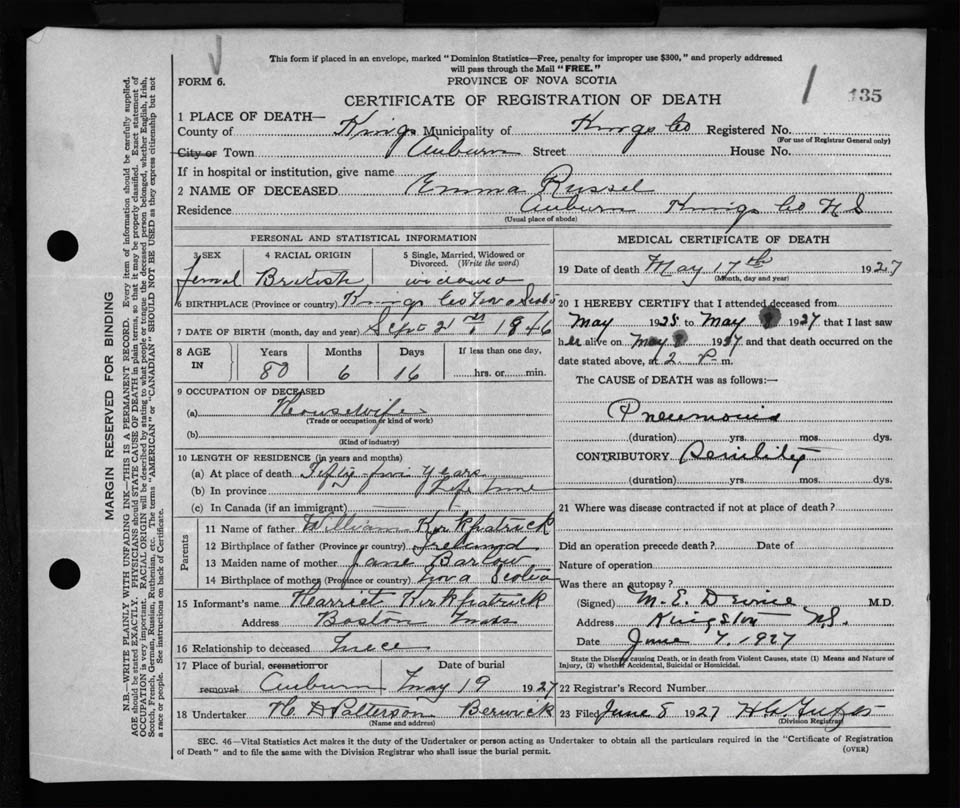 This form if placed in an envelope, marked "Dominion Statistics—Free, penalty for improper use $300," and properly addressed
will pass through the Mail "FREE."
FORM 6.
PROVINCE OF NOVA SCOTIA
CERTIFICATE OF REGISTRATION OF DEATH
1 135
1 PLACE OF DEATH—
County of Kings Municipality of Kings Co Registered No.
(For use of Registrar General only)
City or Town Auburn Street House No.
If in hospital or institution, give name
2 NAME OF DECEASED Emma Russel
Residence Auburn Kings Co N S
(Usual place of abode)
PERSONAL AND STATISTICAL INFORMATION
3 SEX 4 RACIAL ORIGIN 5 Single, Married, Widowed or
Divorced. (Write the word)
Femal British widowed
6 BIRTHPLACE (Province or country) Kings Co Nova Scotia
7 DATE OF BIRTH (month, day and year) Sept 21st 1846
8 AGE IN Years Months Days If less than one day,
80 6 16 hrs. or min.
9 OCCUPATION OF DECEASED
(a) Housewife
(Trade or occupation or kind of work)
(b)
(Kind of industry)
10 LENGTH OF RESIDENCE (in years and months)
(a) At place of death Fifty-five Years
(b) In province Life time
(c) In Canada (if an immigrant)
Parents
11 Name of father William Kirkpatrick
12 Birthplace of father (Province or country) Ireland
13 Maiden name of mother Jane Barlow
14 Birthplace of mother (Province or country) Nova Scotia
15 Informant's name Harriet Kirkpatrick
Address Boston Mass
16 Relationship to deceased Niece
17 Place of burial, cremation or Date of burial
removal Auburn May 19 1927
18 Undertaker H D Patterson Berwick
(Name and address)
MEDICAL CERTIFICATE OF DEATH
19 Date of death May 17th 1927
(Month, day and year)
20 I HEREBY CERTIFY that I attended deceased from
May 1925 to May 1927 that I last saw
her alive on May 1927 and that death occurred on the
date stated above, at 2 P. m.
The CAUSE of DEATH was as follows:—
Pneumonia
(duration) yrs. mos. dys.
CONTRIBUTORY Senility
(duration) yrs. mos. dys.
21 Where was disease contracted if not at place of death?
Did an operation precede death? Date of
Nature of operation
Was there an autopsy?
(Signed) M. E. M.D.
Address Kingston N.S.
Date June 7. 1927
State the Disease causing Death, or in death from Violent Causes, state (1) Means and Nature of
Injury, (2) whether Accidental, Suicidal or Homicidal.
22 Registrar's Record Number
23 Filed June 8 1927
(Division Registrar)
SEC. 46—Vital Statistics Act makes it the duty of the Undertaker or person acting as Undertaker to obtain all the particulars required in the "Certificate of Registration
of Death" and to file the same with the Division Registrar who shall issue the burial permit.
(OVER)
MARGIN RESERVED FOR BINDING
N.B.—WRITE PLAINLY WITH UNFADING INK—THIS IS A PERMANENT RECORD. Every item of information should be carefully supplied.
AGE should be stated EXACTLY. PHYSICIANS should STATE CAUSE OF DEATH in plain terms, so that it may be properly classified. Exact statement of
OCCUPATION is very important. RACIAL ORIGIN will be described by stating to what people or tongue the deceased person belonged, whether English, Irish,
Scotch, French, German, Russian, Ruthenian, etc. The terms "AMERICAN" or "CANADIAN" SHOULD NOT BE USED as they express citizenship but not
a race or people. See instructions on back of Certificate.